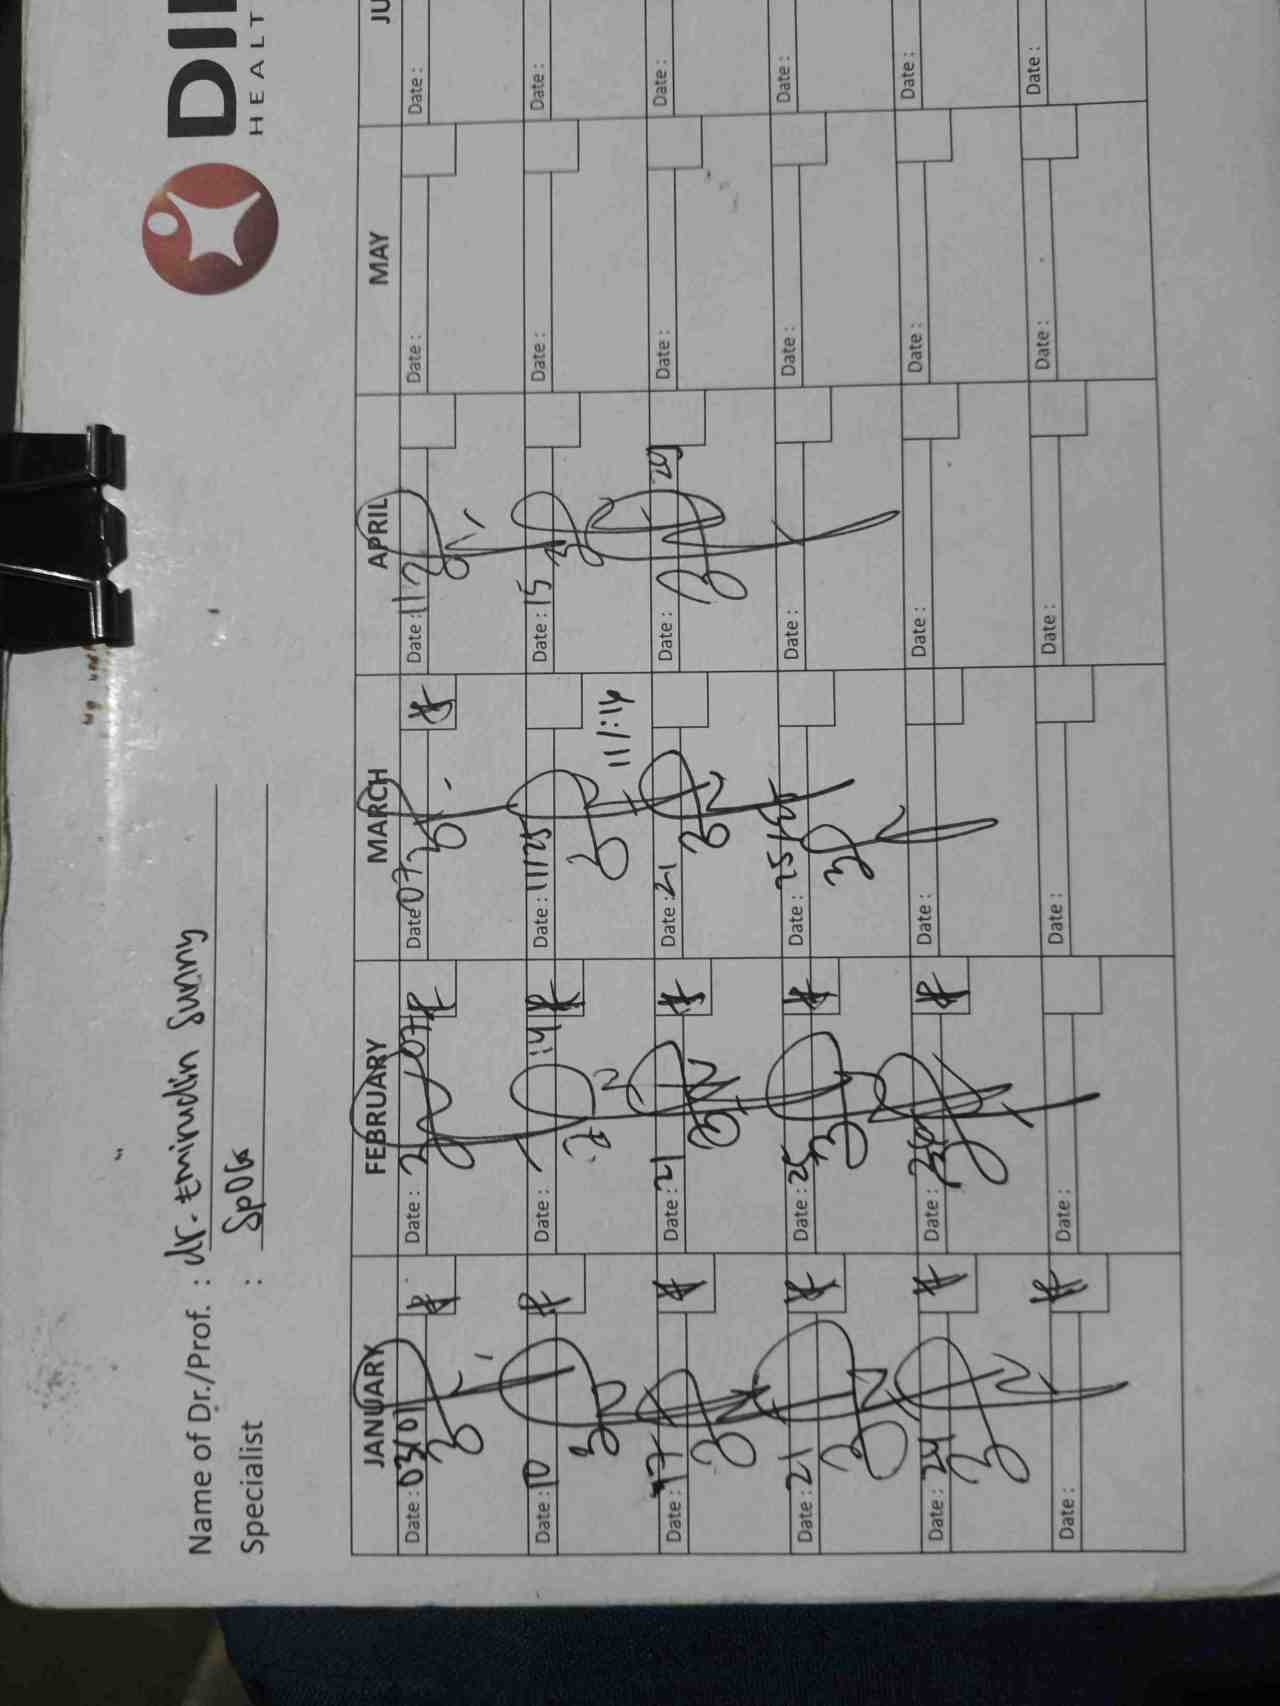 DI
HEALT
Name of Dr./Prof. : dr. Eminudin Sunny
Specialist : SpOG
JANUARY FEBRUARY MARCH APRIL MAY JU
Date : 03/01 Date : Date : 07 Date : 11 Date : Date :
Date : 10 Date : 14 Date : 11/25 Date : 15 Date : Date :
11/:14
Date : 17 Date : 21 Date : 21 Date : 29 Date : Date :
Date : 21 Date : 25 Date : 25 Date : Date : Date :
Date : 24 Date : Date : Date : Date : Date :
Date : Date : Date : Date : Date : Date :